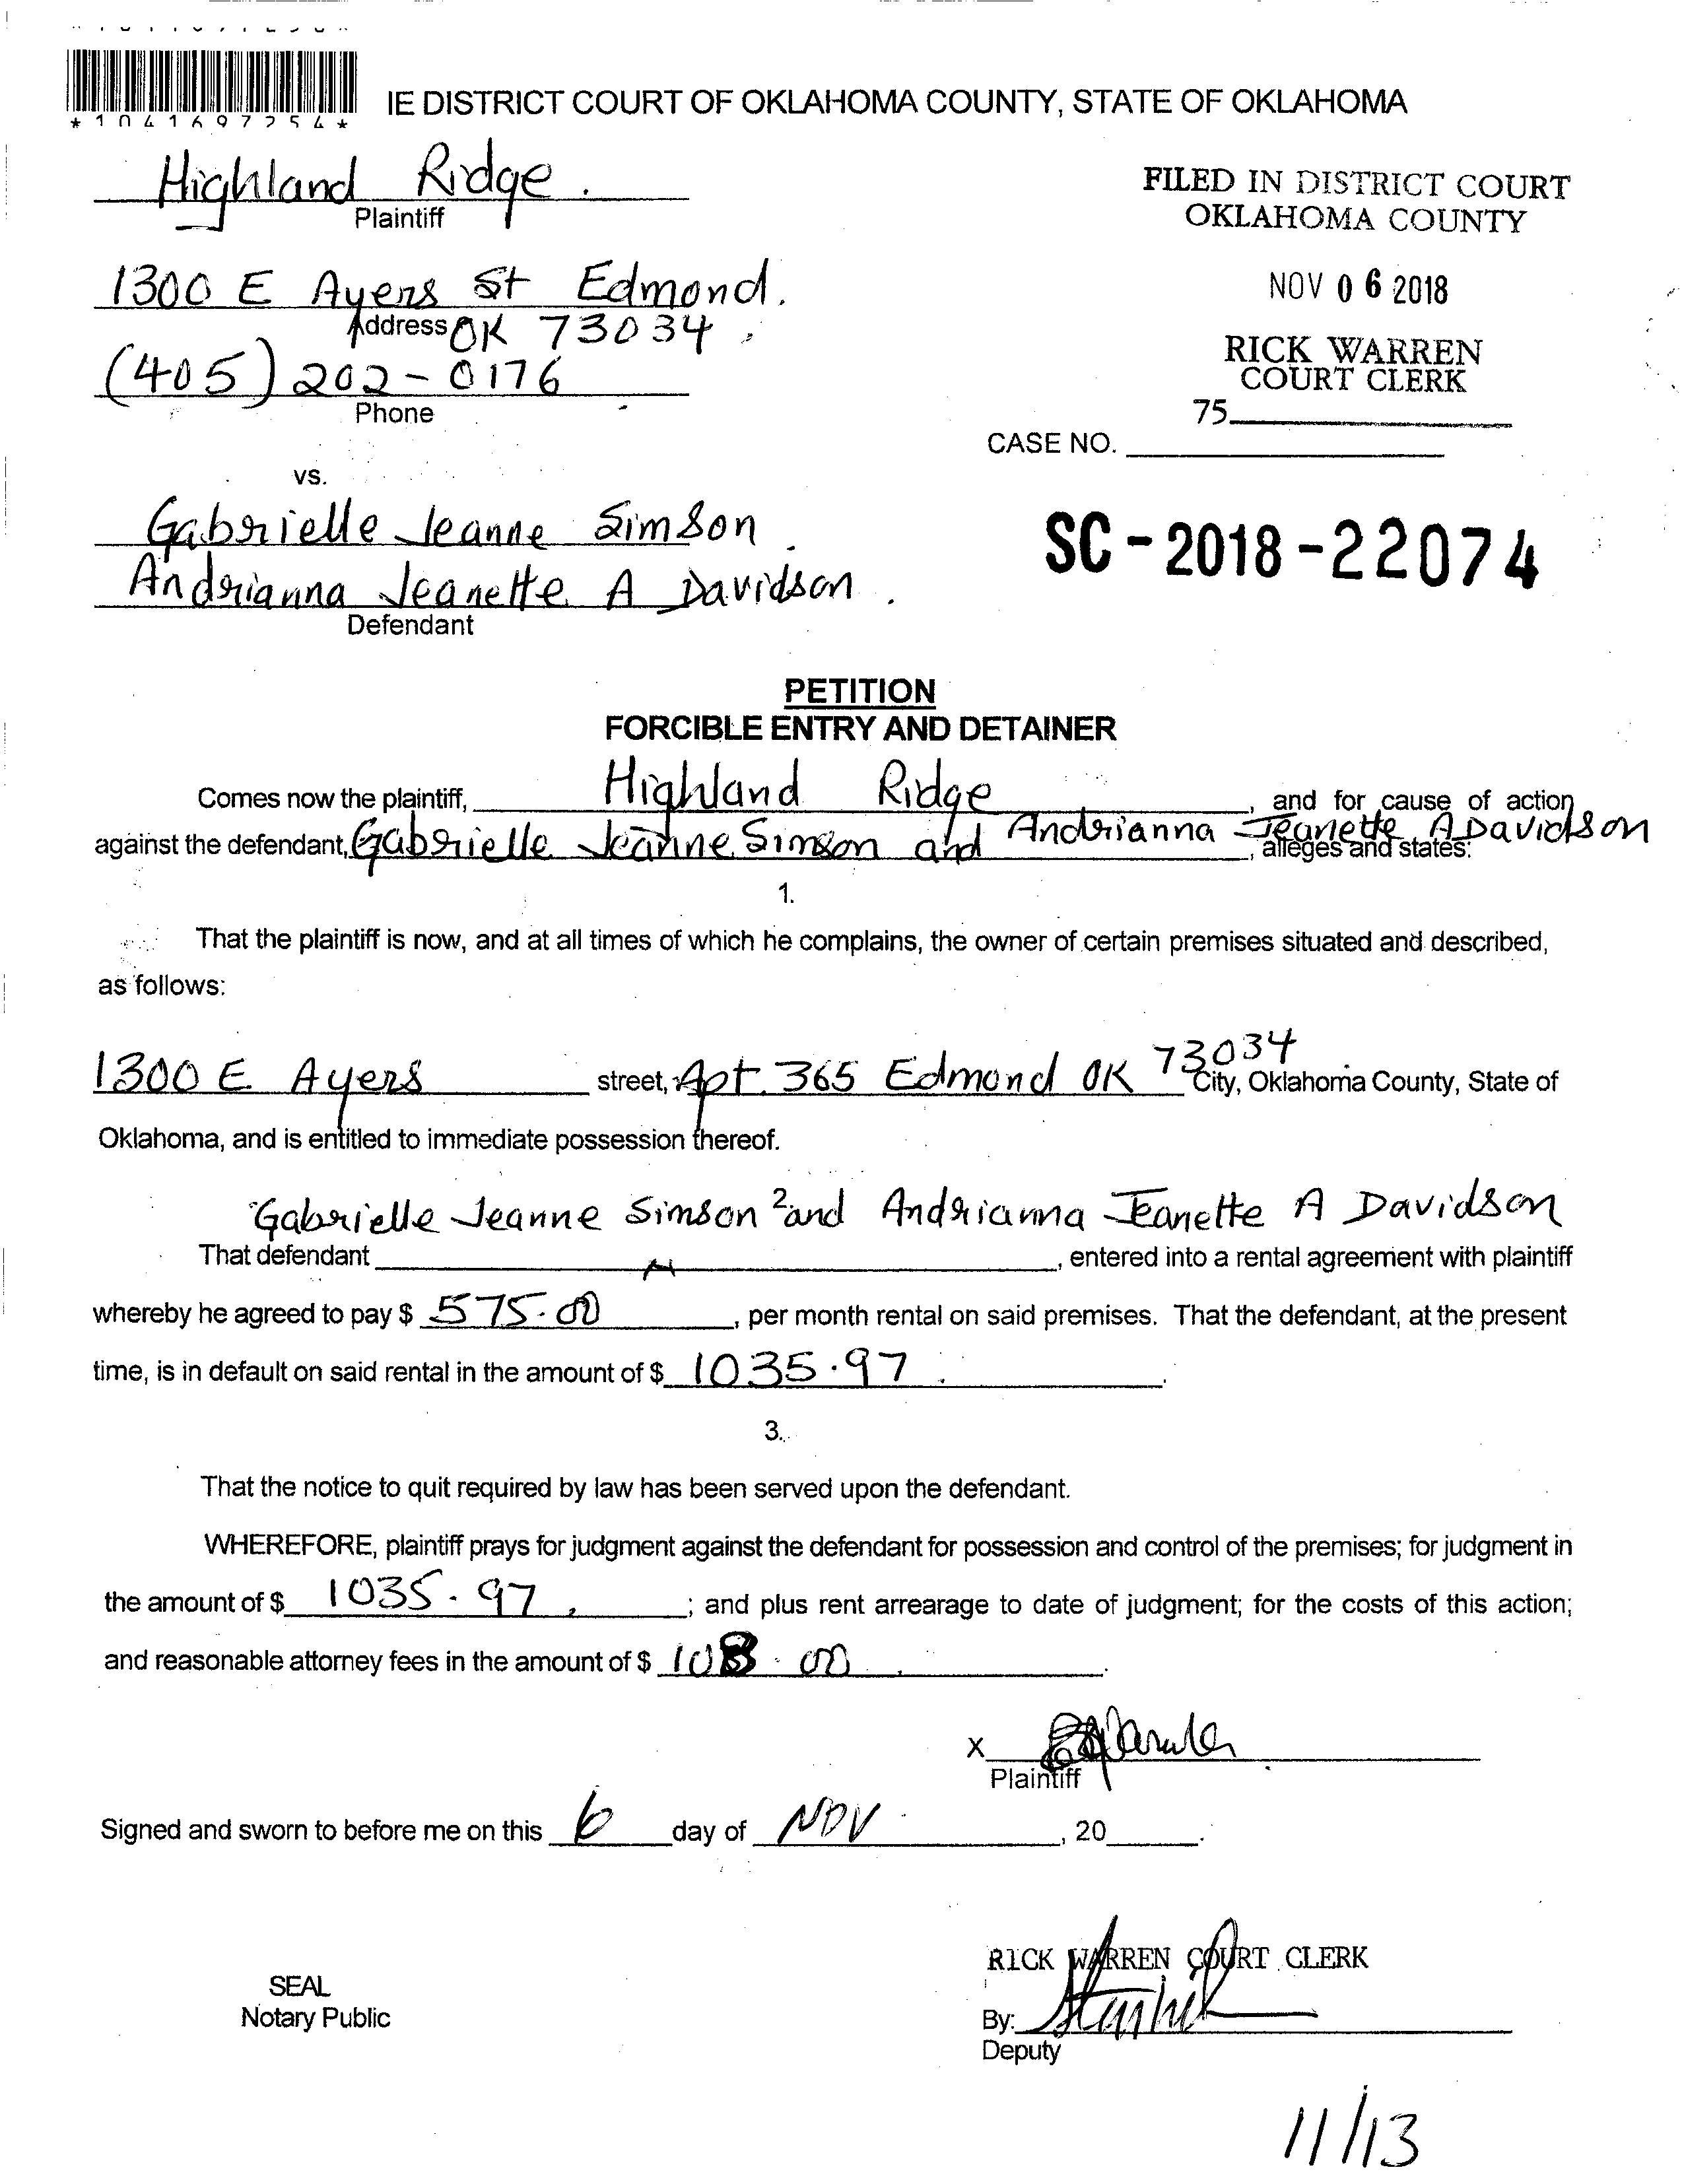 *1041697254*
IE DISTRICT COURT OF OKLAHOMA COUNTY, STATE OF OKLAHOMA
Highland Ridge.
Plaintiff
FILED IN DISTRICT COURT
OKLAHOMA COUNTY
1300 E Ayers St Edmond.
Address OK 73034
NOV 06 2018
(405) 202-0176
Phone
RICK WARREN
COURT CLERK
75
CASE NO.
vs.
Gabrielle Jeanne Simson
Andrianna Jeanette A Davidson.
Defendant
SC-2018-22074
PETITION
FORCIBLE ENTRY AND DETAINER
Comes now the plaintiff, Highland Ridge, and for cause of action
against the defendant, Gabrielle Jeanne Simson and Andrianna Jeanette A Davidson, alleges and states:
1.
That the plaintiff is now, and at all times of which he complains, the owner of certain premises situated and described,
as follows:
1300 E Ayers street, Apt. 365 Edmond OK 73034 City, Oklahoma County, State of
Oklahoma, and is entitled to immediate possession thereof.
2
Gabrielle Jeanne Simson and Andrianna Jeanette A Davidson
That defendant, entered into a rental agreement with plaintiff
whereby he agreed to pay $ 575.00, per month rental on said premises. That the defendant, at the present
time, is in default on said rental in the amount of $ 1035.97.
3.
That the notice to quit required by law has been served upon the defendant.
WHEREFORE, plaintiff prays for judgment against the defendant for possession and control of the premises; for judgment in
the amount of $ 1035.97; and plus rent arrearage to date of judgment; for the costs of this action;
and reasonable attorney fees in the amount of $ 108.00.
X
Plaintiff
Signed and sworn to before me on this 6 day of NOV, 20.
RICK WARREN COURT CLERK
SEAL
Notary Public
By:
Deputy
11/13